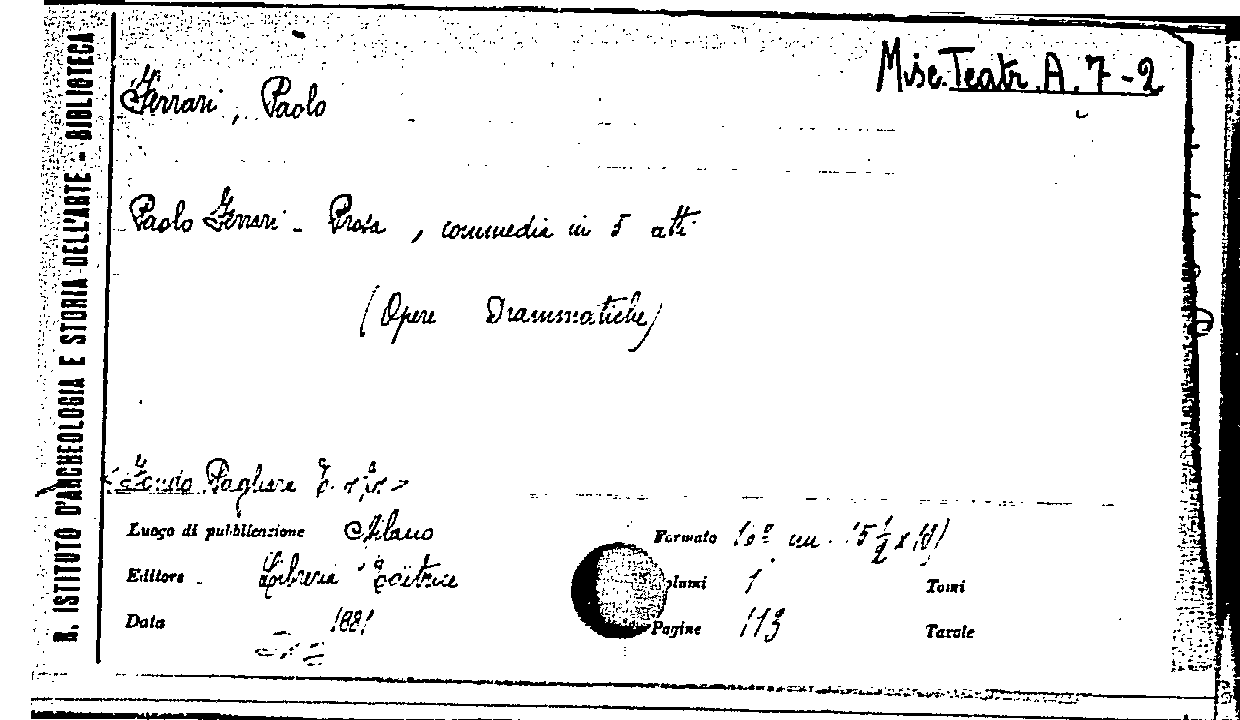 R. ISTITUTO D'ARCHEOLOGIA E STORIA DELL'ARTE - BIBLIOTECA
Misc. Teatr. A. 7-2
Ferrari, Paolo
Paolo Ferrari - Prosa, commedia in 5 atti
(Opere Drammatiche)
Luogo di pubblicazione Milano
Formato 16º cm.
Editore Libreria Editrice
Volumi 1
Tomi
Data 1881
Pagine 113
Tavole